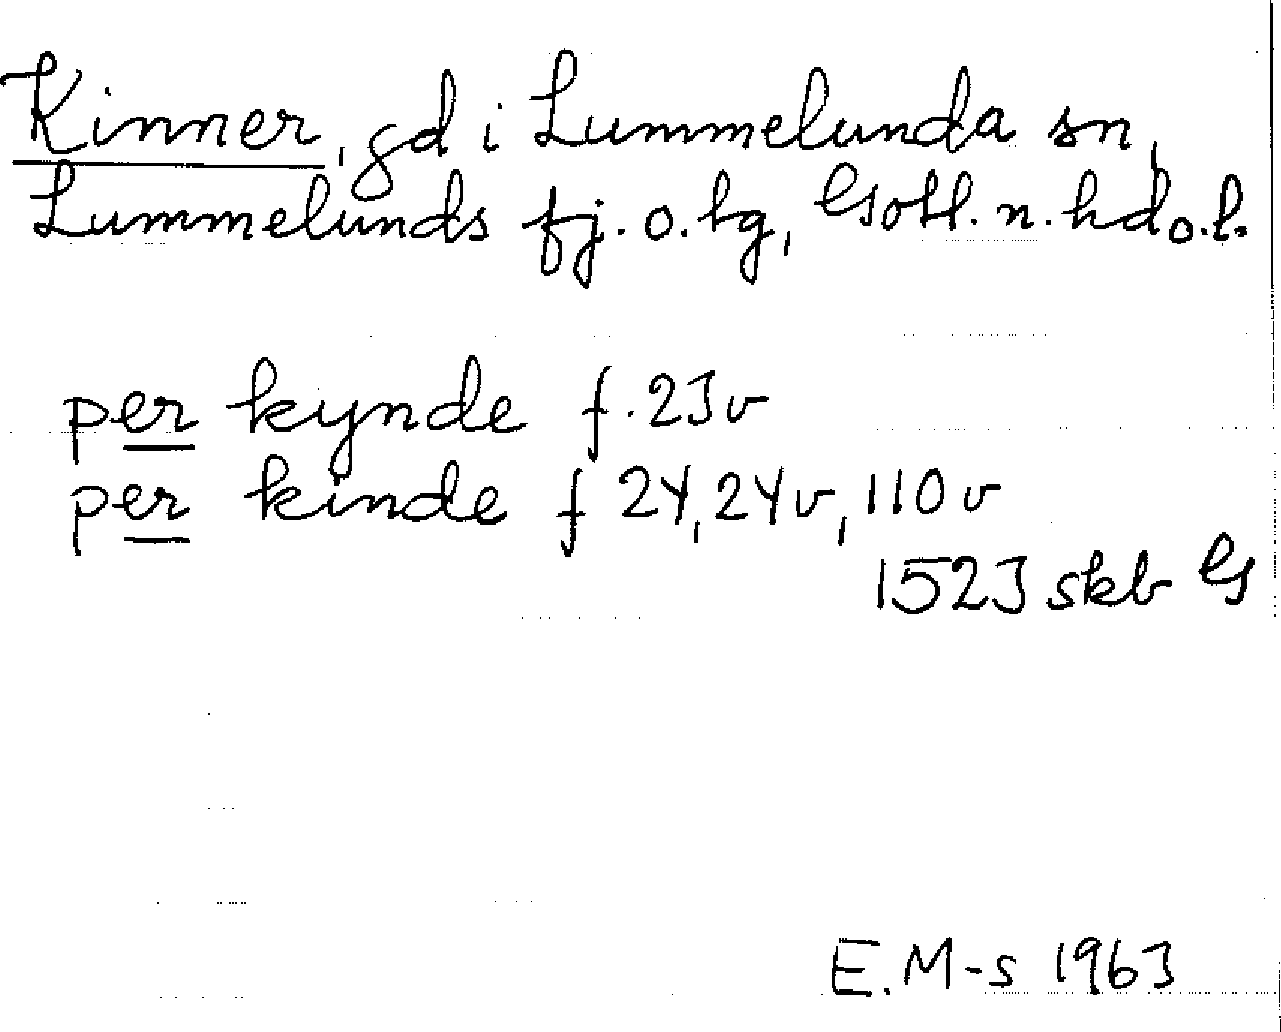 Kinner, gd i Lummelunda sn,
Lummelunds fj. o. tg, Gotl. n. hd o. l.
per kynde f. 23v
per kinde f 24, 24v, 110v
1523 skb G
E. M-s 1963